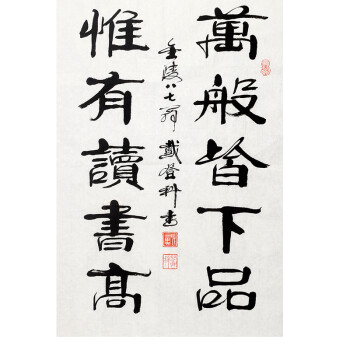 萬般皆下品
惟有讀書高
金陵八七翁戴登科書